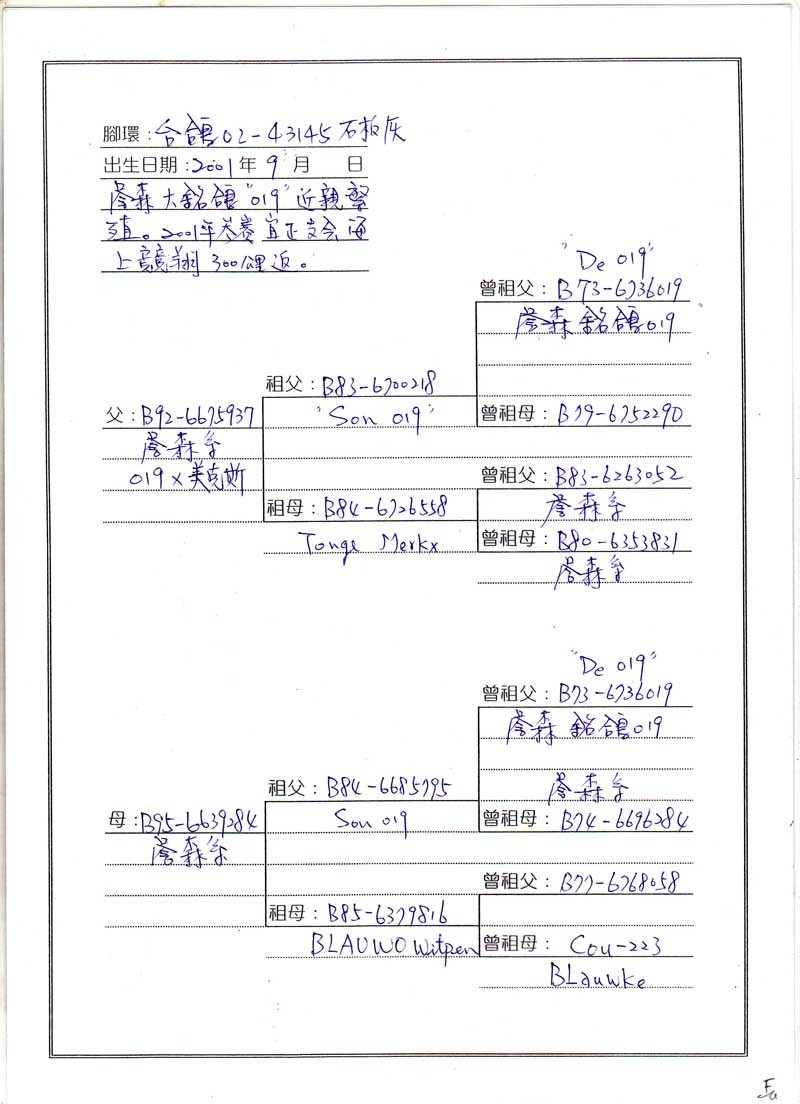 腳環：台鴿02-43145 石板灰
出生日期：2001年 9 月 日
詹森大銘鴿"019"近親繁
殖。2001年參賽宜正支会海
上競翔300公里返。
"De 019"
曾祖父：B73-6736019
詹森銘鴿019
祖父：B83-6700218
父：B92-6675937
"Son 019"
曾祖母：B79-6752290
詹森系
019 x 美克斯
曾祖父：B83-6263052
祖母：B84-6726558
詹森系
Jonge Merkx
曾祖母：B80-6353831
詹森系
"De 019"
曾祖父：B73-6736019
詹森銘鴿019
祖父：B84-6685795
詹森系
母：B95-6639284
Son 019
曾祖母：B74-6696284
詹森系
曾祖父：B77-6768058
祖母：B85-6379816
BLAUWO witpen
曾祖母：Cou-223
BLauwke